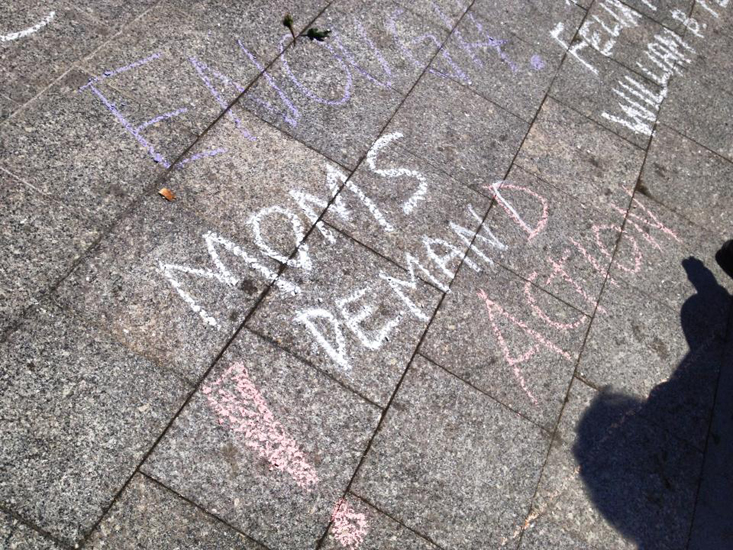 ENOUGH
MOMS
DEMAND
ACTION
!
WILLIAM